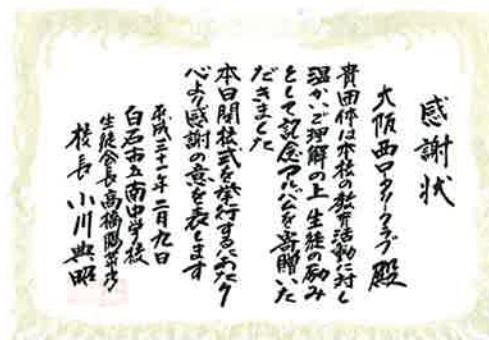 感謝状
大阪西ロータリークラブ 殿
貴団体は本校の教育活動に対し
温かいご理解の上 生徒の励み
として記念アルバムを寄贈いた
だきました
本日閉校式を挙行するにあたり
心より感謝の意を表します
平成三十一年二月九日
白石市立南中学校
生徒会長 高橋陽
校長 小川典昭